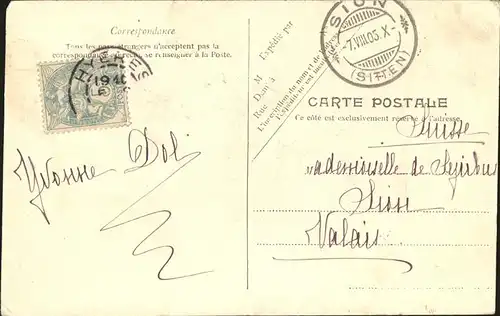 Correspondance
Tous les pays étrangers n'acceptent pas la
correspondance au recto, se renseigner à la Poste.
Expédié par
M
Dem à
Rue
L'inscription du nom et de l'adresse
SION
7.VIII.05.X
(SITTEN)
CARTE POSTALE
Ce côté est exclusivement réservé à l'adresse.
Yvonne Dol
Suisse
Mademoiselle de
Sion
Valais